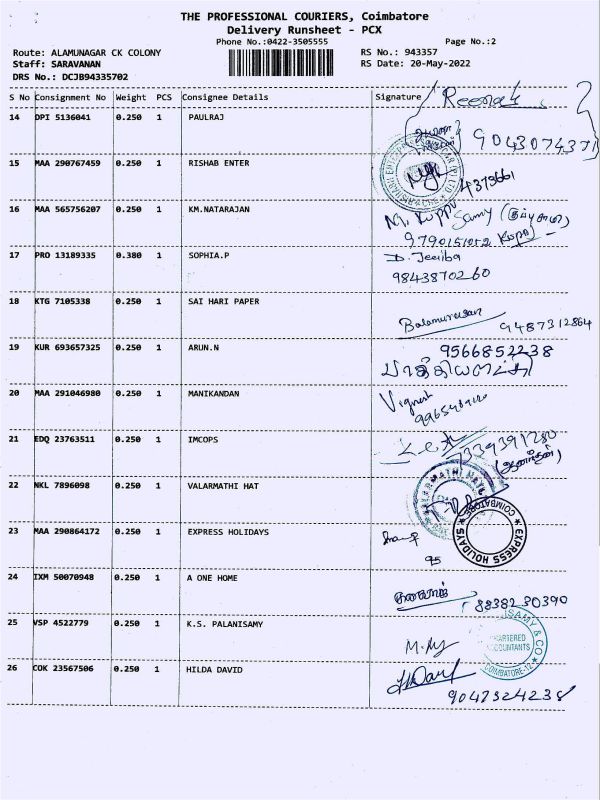 THE PROFESSIONAL COURIERS, Coimbatore
Delivery Runsheet - PCX
Phone No.:0422-3505555
Page No.:2
Route: ALAMUNAGAR CK COLONY
RS No.: 943357
Staff: SARAVANAN
RS Date: 20-May-2022
DRS No.: DCJB94335702
S No Consignment No Weight PCS Consignee Details Signature
14 DPI 5136041 0.250 1 PAULRAJ
9043074371
15 MAA 290767459 0.250 1 RISHAB ENTER
4373661
16 MAA 565756207 0.250 1 KM.NATARAJAN
17 PRO 13189335 0.380 1 SOPHIA.P
9843870260
18 KTG 7105338 0.250 1 SAI HARI PAPER
Balamurugan 9487312864
19 KUR 693657325 0.250 1 ARUN.N
9566852238
20 MAA 291046980 0.250 1 MANIKANDAN
Vignesh
21 EDQ 23763511 0.250 1 IMCOPS
7339391280
22 NKL 7896098 0.250 1 VALARMATHI HAT
23 MAA 290864172 0.250 1 EXPRESS HOLIDAYS
EXPRESS HOLIDAYS
COIMBATORE
95
24 IXM 50070948 0.250 1 A ONE HOME
8838230390
25 VSP 4522779 0.250 1 K.S. PALANISAMY
SAMY & CO
CHARTERED
ACCOUNTANTS
COIMBATORE-12
26 COK 23567506 0.250 1 HILDA DAVID
9047324238